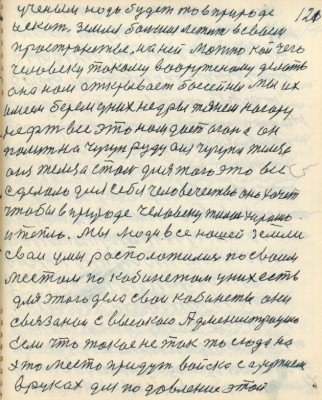 ученым надо будет то в природе 120
искат. Земля большая летит в своем
пространстве, на ней можно кой чего
человеку такому вооруженому делать
она нам открывает басейны мы их
имеем берем у них недры тянем на гору
нефт все это нам дает огона он
чугун руду из чугуна железа
из железа стал для того это все
сделало для себя человечество оно хочет
чтобы в природе человеку жилось хорошо
и тепло. Мы люди все нашей земли
свои умы расположили по своим
местам по кабинетам у них есть
для этого дела свои кабинеты они
связаны с высокою Администрацию
Если что такое не так то сюда на
это место придут войска с оружием
в руках для подавление этой